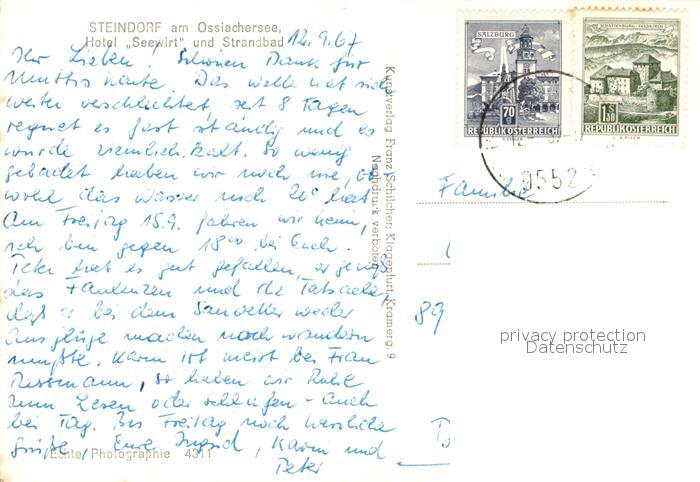 STEINDORF am Ossiachersee,
Hotel „Seewirt" und Strandbad
12.9.67
Ihr Lieben! Schönen Dank für
Muttis Karte. Das Wetter hat sich
weiter verschlechtert, seit 8 Tagen
regnet es fast ständig und es
wurde ziemlich kalt. So wenig
gebadet haben wir noch nie, ob-
wohl das Wasser noch 20° hat.
Am Freitag 15.9. fahren wir heim,
ich bin gegen 18⁰⁰ bei Euch.
Peter hat es gut gefallen, er genoß
das Faulenzen und die Tatsache,
daß er bei dem Sauwetter weder
Ausflüge machen noch wandern
mußte. Karin ist meist bei Frau
so haben wir Ruhe
zum Lesen oder schlafen - auch
bei Tag. Bis Freitag noch herzliche
Grüße, Eure Ingrid, Karin und
Peter
Echte Photographie 4311
Kunstverlag Franz Schilcher, Klagenfurt, Kramerg. 9
Nachdruck verboten
SALZBURG
70 g
REPUBLIK ÖSTERREICH
SCHATTENBURG-FELDKIRCH
1 S 30
REPUBLIK ÖSTERREICH
9552
Familie
89
privacy protection
Datenschutz